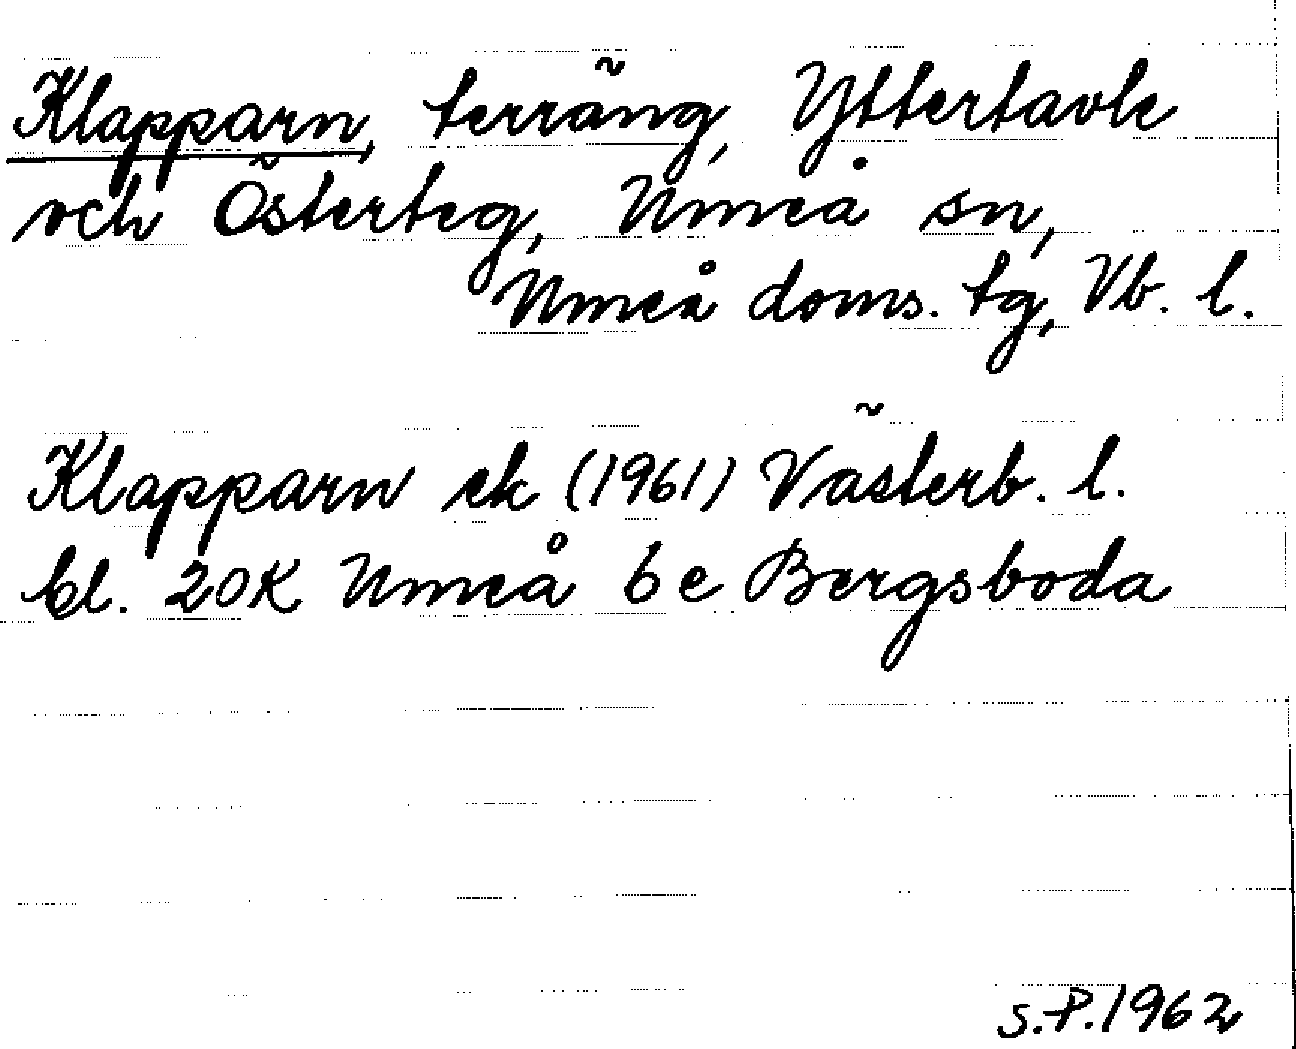 Klapparn, terräng, Yttertavle
och Österteg, Umeå sn,
Umeå doms. tg, Vb. l.
Klapparn ek (1961) Västerb. l.
bl. 20K Umeå 6e Bergsboda
S.P. 1962